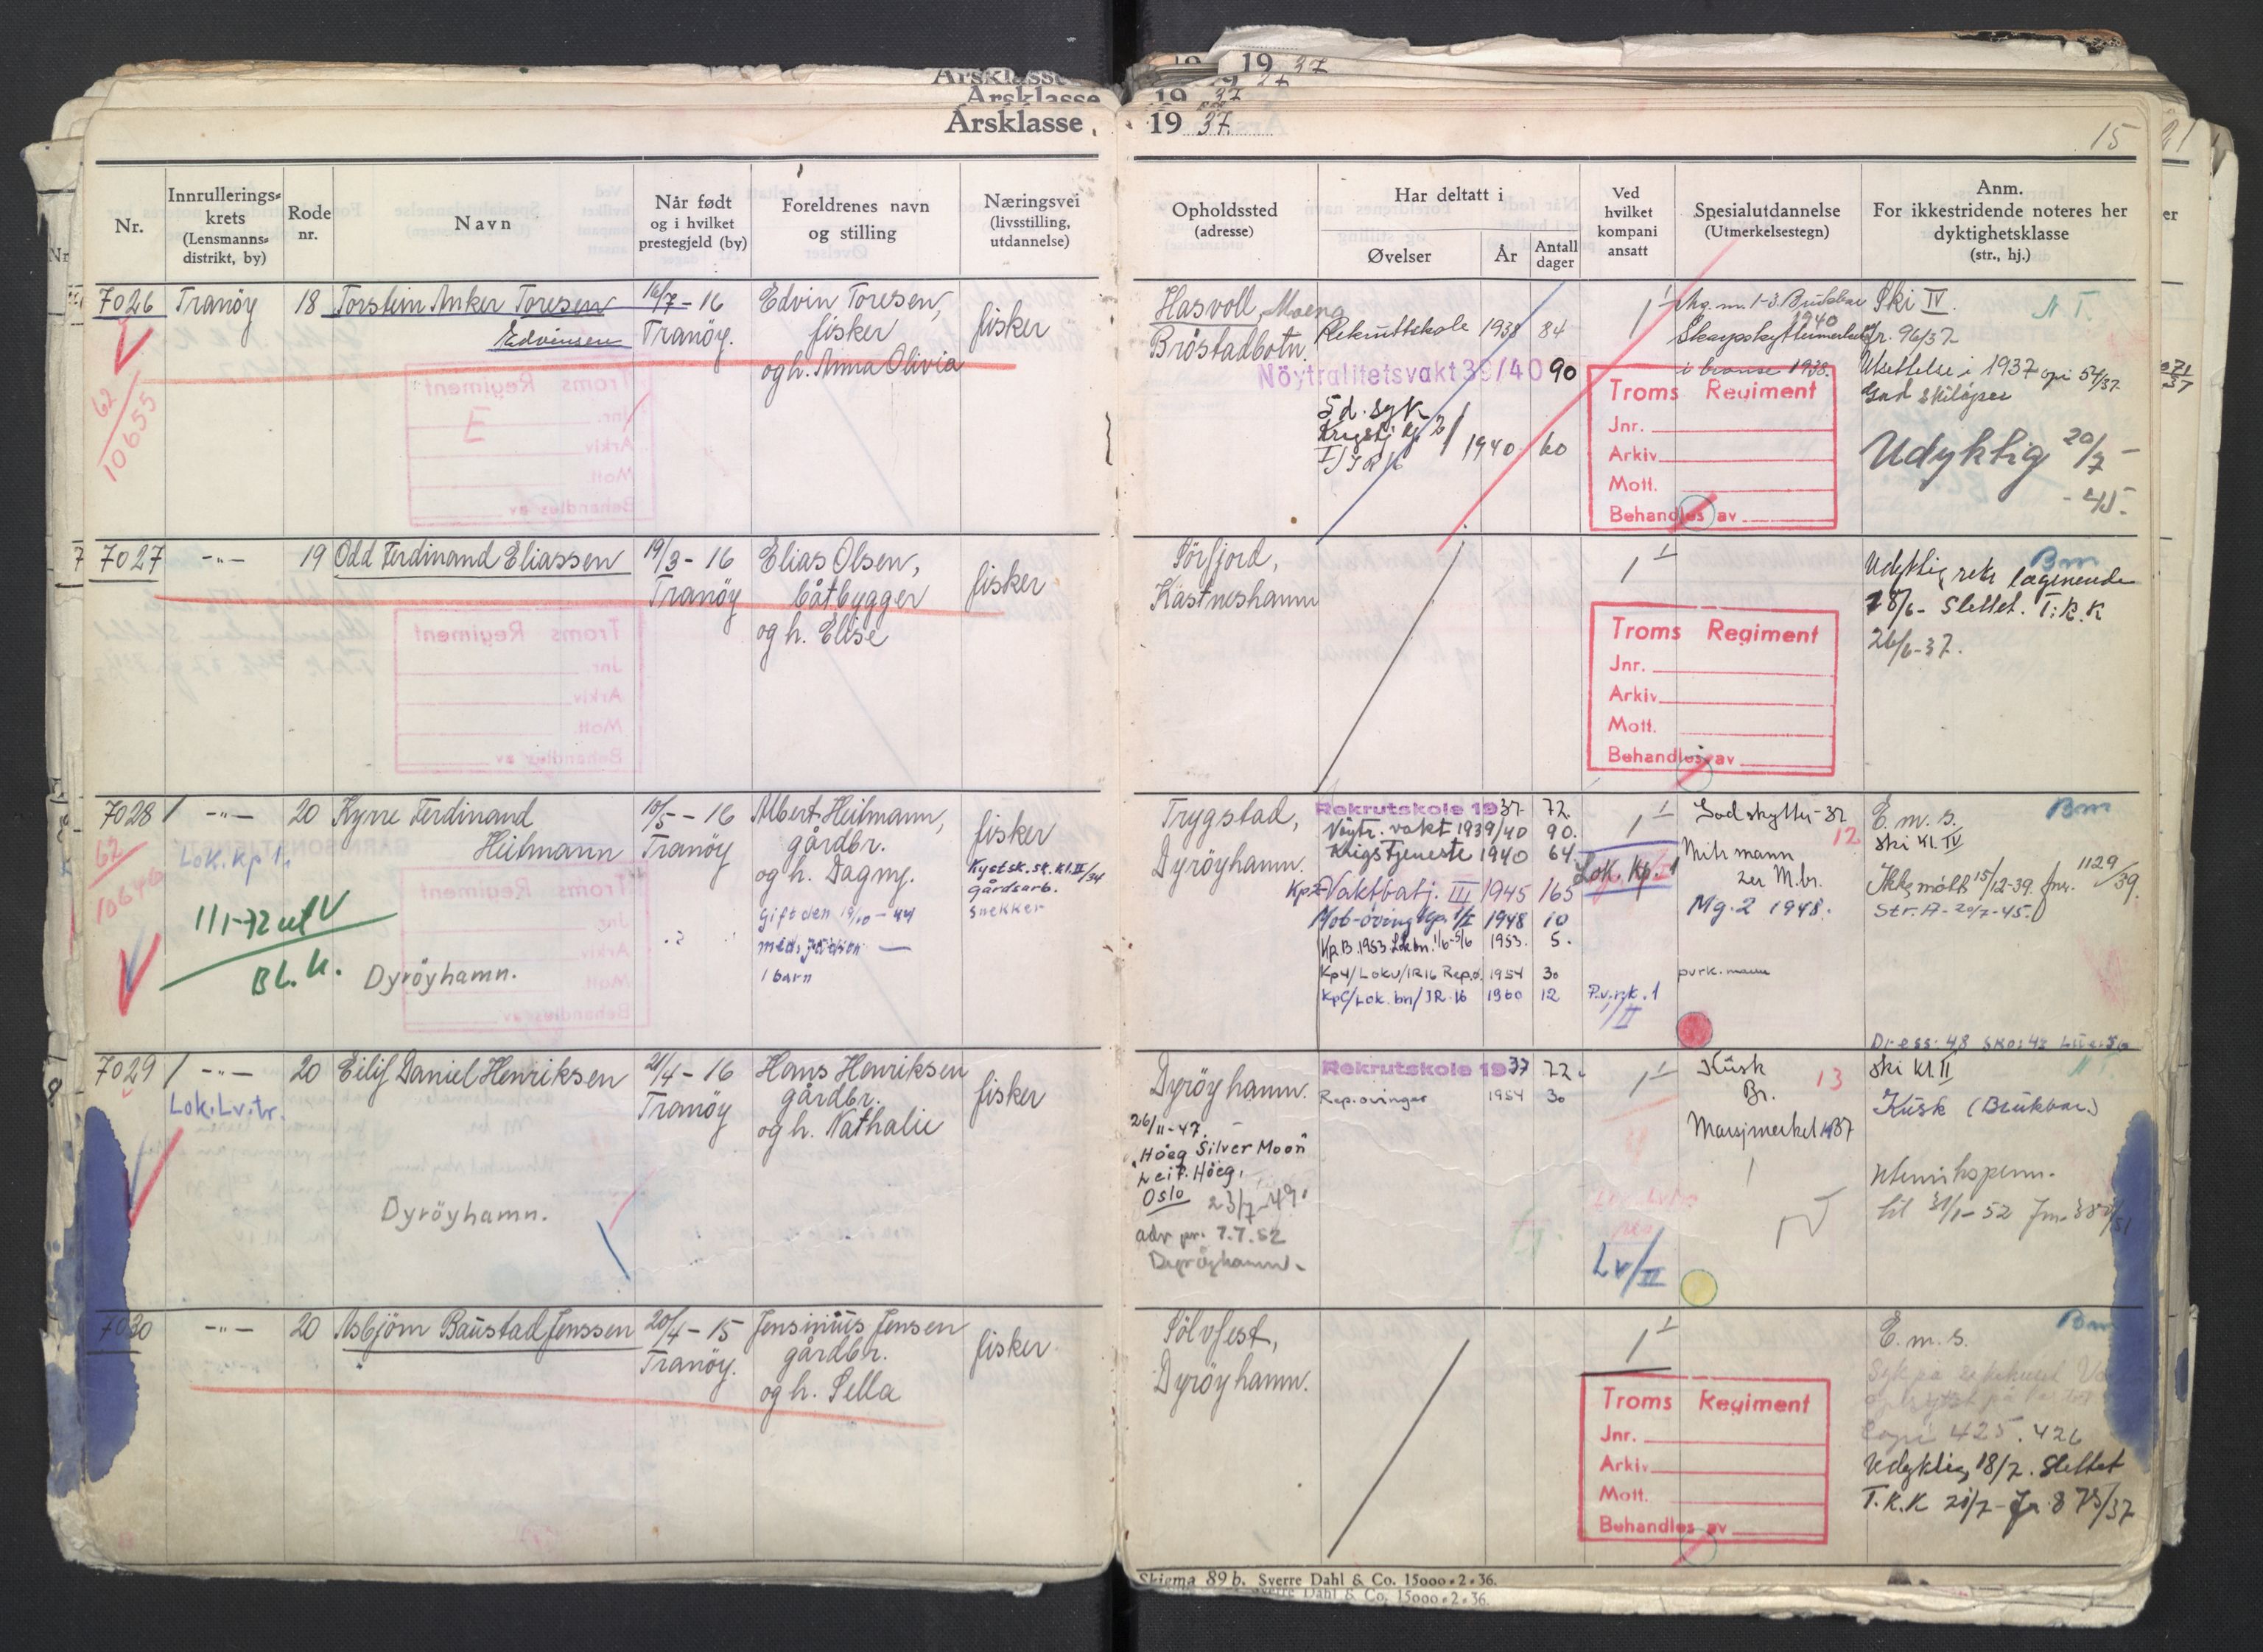 Årsklasse 1937.
15
Nr.
Innrullerings-
krets
(Lensmanns-
distrikt, by)
Rode
nr.
Navn
Når født
og i hvilket
prestegjeld (by)
Foreldrenes navn
og stilling
Næringsvei
(livsstilling,
utdannelse)
Opholdssted
(adresse)
Har deltatt i
Øvelser
År
Antall
dager
Ved
hvilket
kompani
ansatt
Spesialutdannelse
(Utmerkelsestegn)
Anm.
For ikkestridende noteres her
dyktighetsklasse
(str., hj.)
7026
Tranöy
18
Torstein Anker Toresen
Edvinsen
16/7-16
Tranöy.
Edvin Toresen,
fisker
og h. Anna Olivia
fisker
62/10655
Hasvoll, Moena
Bröstadbotn.
Rekruttskole 1938 84
Nöytralitetsvakt 39/40 90
5 d. syk
1940 60
I/IR 16
1 I
Skarpskyttermerket
i bronse 1938.
1940
Troms Regiment
Jnr.
Arkiv
Mott.
Behandles av
Ski IV.
Jr. 96/37
Utsettelse i 1937 opi 54/37
God skilöper
Udyktig 20/7-
-45.
7027
-"-
19
Odd Ferdinand Eliassen
19/3-16
Tranöy
Elias Olsen,
båtbygger
og h. Elise
fisker
Sörfjord,
Kastneshamn
1 I
Troms Regiment
Jnr.
Arkiv
Mott.
Behandles av
Bm
Udyktig
Slettet. T.K.K
26/6-37.
7028
-"-
20
Kyrre Ferdinand
Heilmann
10/5-16
Tranöy
Albert Heilmann,
gårdbr.
og h. Dagny.
Gift den 19/10-44
1 barn
fisker
Kystsk.sk.kl.II/34
gårdsarb.
snekker
62/10646
Lok.kp 1.
1/1-72 utl V
Bl.k.
Dyröyhamn.
Trygstad,
Dyröyhamn.
Rekrutskole 1937 72
Nöytr. vakt 1939/40 90.
Krigstjeneste 1940 64
Kp2 Vaktbatj. III 1945 165
Mob-öving Kp. 1/I 1948 10
Kp.B.1953 Lok.bn. 1/6-5/6 1953. 5.
Kp4/LokV/IR16 Rep.ö. 1954 30
KpC/Lok.bn/IR.16 1960 12
1 I
Lok. Kp. 1
P.v.rk.1
/II
God skytter-37
12
Mitr mann
zer M.br.
Mg.2 1948.
pvrk.mann
Bm
E.m.s.
Ski kl. IV
Ikke mött 15/12-39. Jnr. 1129/39.
Str. A-20/7-45.
Dress: 48 Sko: 43
7029
-"-
20
Eilif Daniel Henriksen
21/4-16
Tranöy
Hans Henriksen
gårdbr.
og h. Nathalie
fisker
Lok.Lv.tr.
Dyröyhamn.
Dyröyhamn.
26/11-47.
"Höeg Silver Moon"
Leif Höeg,
Oslo 23/7-49.
adr pr. 7.7.52
Dyröyhamn.
Rekrutskole 1937 72.
Rep.övinger 1954 30
1 I
Lv/II
Kusk
Br.
13
Marsjmerket 1937
Ski kl. II
Kusk (Brukbar)
Utenriksperm.
til 31/1-52
7030
-"-
20
Asbjörn Baustad Jenssen
20/4-15
Tranöy.
Jensinius Jensen
gårdbr.
og h. Sella
fisker
Sölvfest,
Dyröyhamn.
1 I
Troms Regiment
Jnr.
Arkiv
Mott.
Behandles av
Bm
E.m.s.
425. 426
Udyktig 18/7. Slettet
T.K.K 20/7-Jr. 875/37
Skjema 89 b. Sverre Dahl & Co. 15000-2-36.